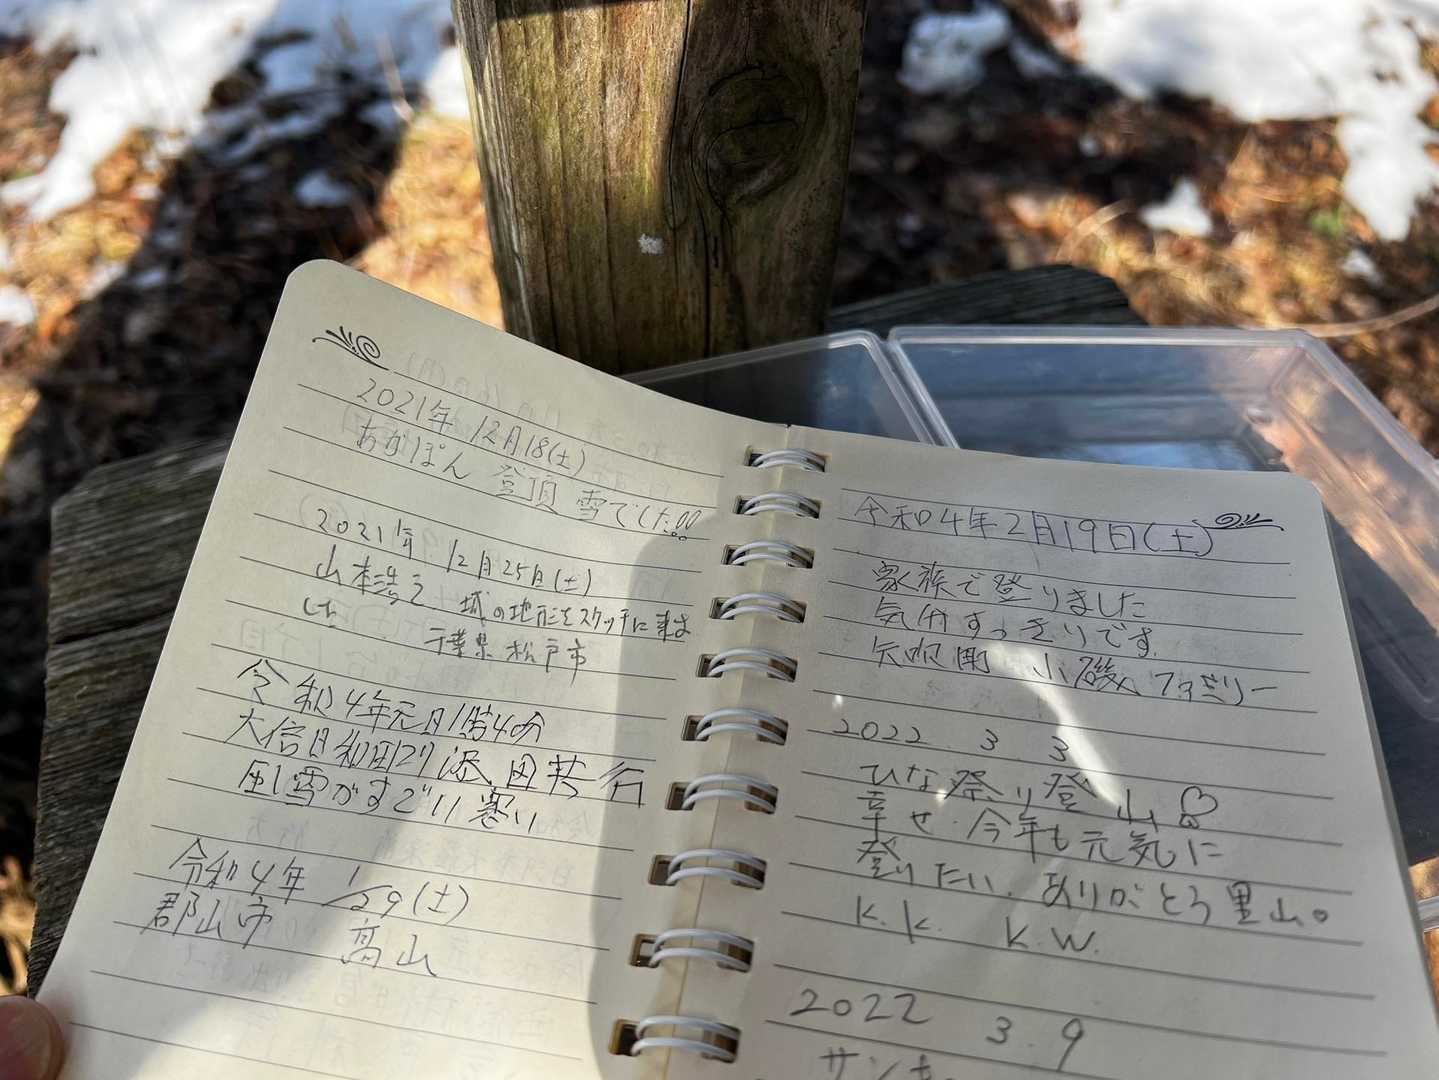 2021年 12月18(土)
あかぽん 登頂 雪でした。
2021年 12月25日(土)
山本浩之 城の地形をスケッチに来ま
した 千葉県松戸市
令和4年元日1時40分
大信日和田27 添田共
風雪がすごい寒い
令和4年 1/29(土)
郡山市 高山
令和04年2月19日(土)
家族で登りました
気分すっきりです
矢吹 小磯ファミリー
2022. 3 3
ひな祭り登山♡
幸せ。今年も元気に
登りたい。ありがとう里山。
K.K. K.W.
2022 3.9